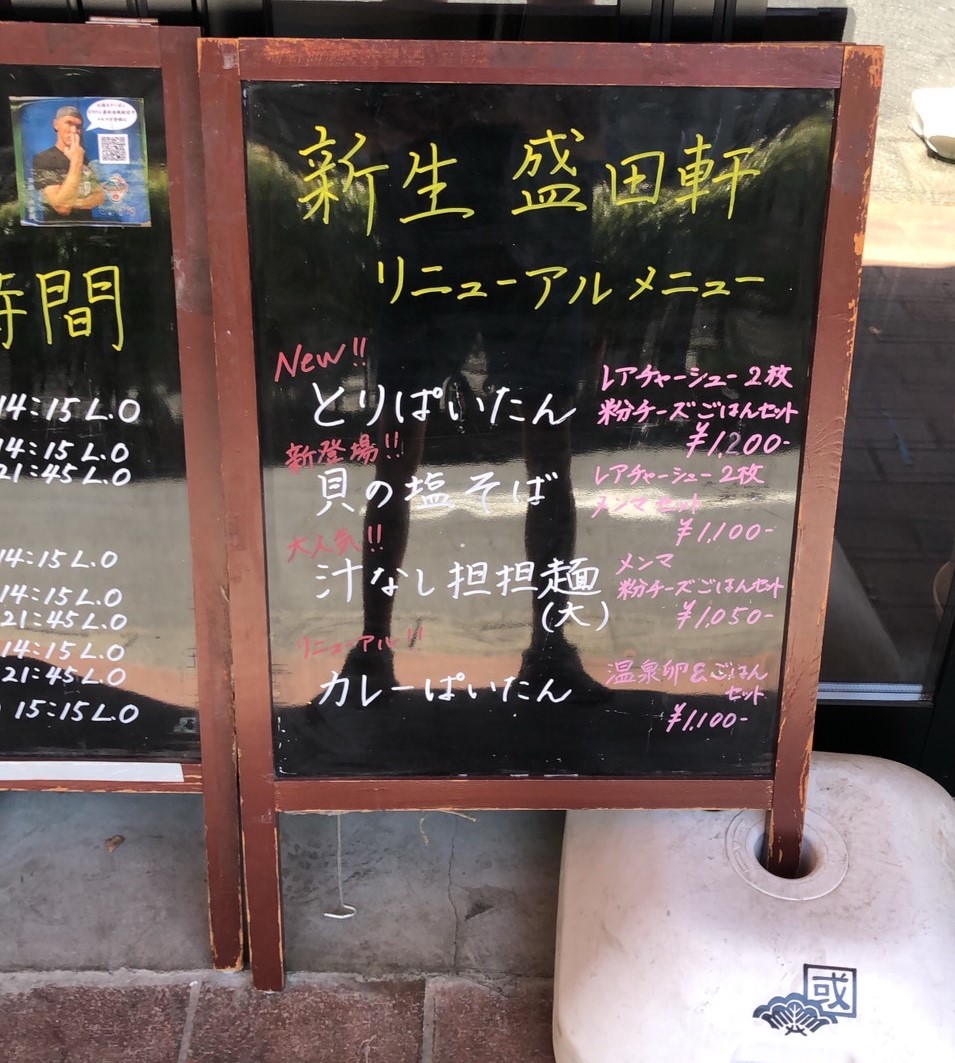 時間
14:15 L.O
14:15 L.O
21:45 L.O
14:15 L.O
14:15 L.O
21:45 L.O
14:15 L.O
21:45 L.O
15:15 L.O
新生 盛田軒
リニューアルメニュー
New!!
とりぱいたん
レアチャーシュー2枚
粉分チーズごはんセット
¥1,200-
新登場!!
貝の塩そば
レアチャーシュー2枚
メンマセット
¥1,100-
大人気!!
汁なし担担麺
(大)
メンマ
粉分チーズごはんセット
¥1,050-
リニューアル!!
カレーぱいたん
温泉卵&ごはん
セット
¥1,100-
國